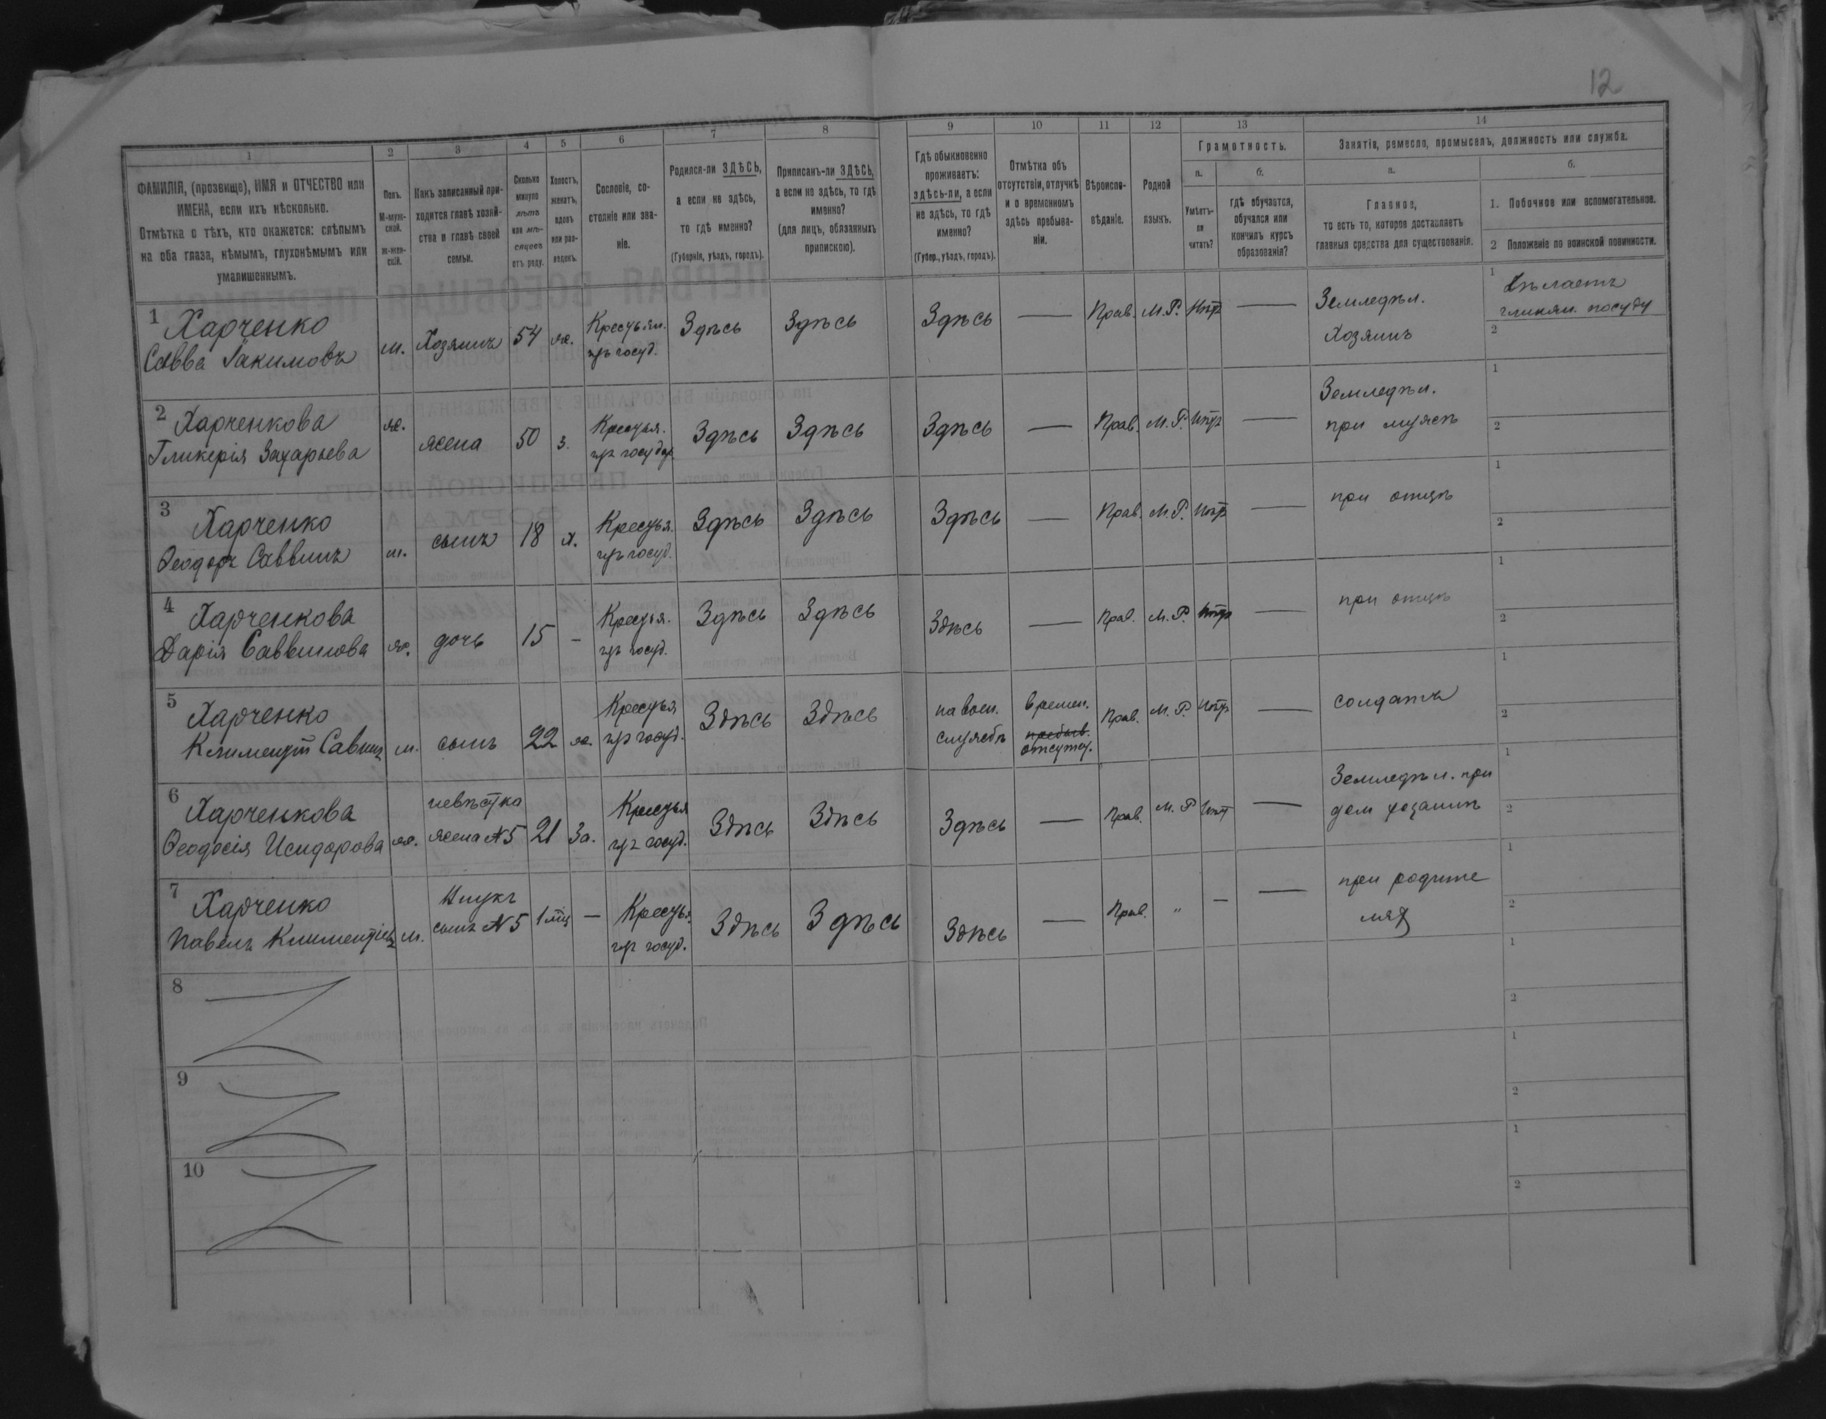 12
1 2 3 4 5 6 7 8 9 10 11 12 13 14
ФАМИЛІЯ, (прозвище), ИМЯ и ОТЧЕСТВО или
ИМЕНА, если ихъ нѣсколько.
Отмѣтка о тѣхъ, кто окажется: слѣпымъ
на оба глаза, нѣмымъ, глухонѣмымъ или
умалишеннымъ.
Полъ.
М-мужс-
кой.
Ж-жен-
скій.
Какъ записанный при-
ходится главѣ хозяй-
ства и главѣ своей
семьи.
Сколько
минуло
лѣтъ
или мѣ-
сяцевъ
отъ роду.
Холостъ,
женатъ,
вдовъ
или раз-
веденъ.
Сословіе, со-
стояніе или зва-
ніе.
Родился-ли ЗДѢСЬ,
а если не здѣсь,
то гдѣ именно?
(Губернія, уѣздъ, городъ).
Приписанъ-ли ЗДѢСЬ,
а если не здѣсь, то гдѣ
именно?
(для лицъ, обязанныхъ
припискою).
Гдѣ обыкновенно
проживаетъ:
здѣсь-ли, а если
не здѣсь, то гдѣ
именно?
(Губер., уѣздъ, городъ).
Отмѣтка объ
отсутствіи, отлучкѣ
и о временномъ
здѣсь пребыва-
ніи.
Вѣроиспо-
вѣданіе.
Родной
языкъ.
Грамотность.
а.
Умѣетъ-
ли
читать?
б.
гдѣ обучается,
обучался или
кончилъ курсъ
образованія?
Занятіе, ремесло, промыселъ, должность или служба.
а.
Главное,
то есть то, которое доставляетъ
главныя средства для существованія.
б.
1. Побочное или вспомогательное.
2 Положеніе по воинской повинности.
1 Харченко
Савва Іакимовъ м. Хозяинъ 54 ж. Крестьян. изъ госуд. Здѣсь Здѣсь Здѣсь — Прав. М.Р. нѣтъ — Земледѣл. Хозяинъ
1 Дѣлаетъ
глинян. посуду
2
2 Харченкова
Гликерія Захарьева ж. жена 50 з. Крестья. изъ государ. Здѣсь Здѣсь Здѣсь — Прав. М.Р. нѣтъ — Земледѣл. при мужѣ
1
2
3 Харченко
Ѳеодоръ Саввинъ м. сынъ 18 х. Крестья. изъ госуд. Здѣсь Здѣсь Здѣсь — Прав. М.Р. нѣтъ — при отцѣ
1
2
4 Харченкова
Дарія Саввинова ж. дочь 15 — Крестья. изъ госуд. Здѣсь Здѣсь Здѣсь — Прав. М.Р. нѣтъ — при отцѣ
1
2
5 Харченко
Климентъ м. сынъ 22 ж. Крестья изъ госуд. Здѣсь Здѣсь на воен. службѣ времен. отсутст. Прав. М.Р. нѣтъ — солдатъ
1
2
6 Харченкова
Ѳеодосія Исидорова ж. невѣстка жена №5 21 За. Крестья изъ госуд. Здѣсь Здѣсь Здѣсь — Прав. М.Р нѣт — Земледѣл. при дом хозяинѣ
1
2
7 Харченко
Павелъ м. Внукъ сынъ №5 1 мѣц — Крестья. изъ госуд. Здѣсь Здѣсь Здѣсь — Прав. „ — — при родителях
1
2
8
1
2
9
1
2
10
1
2